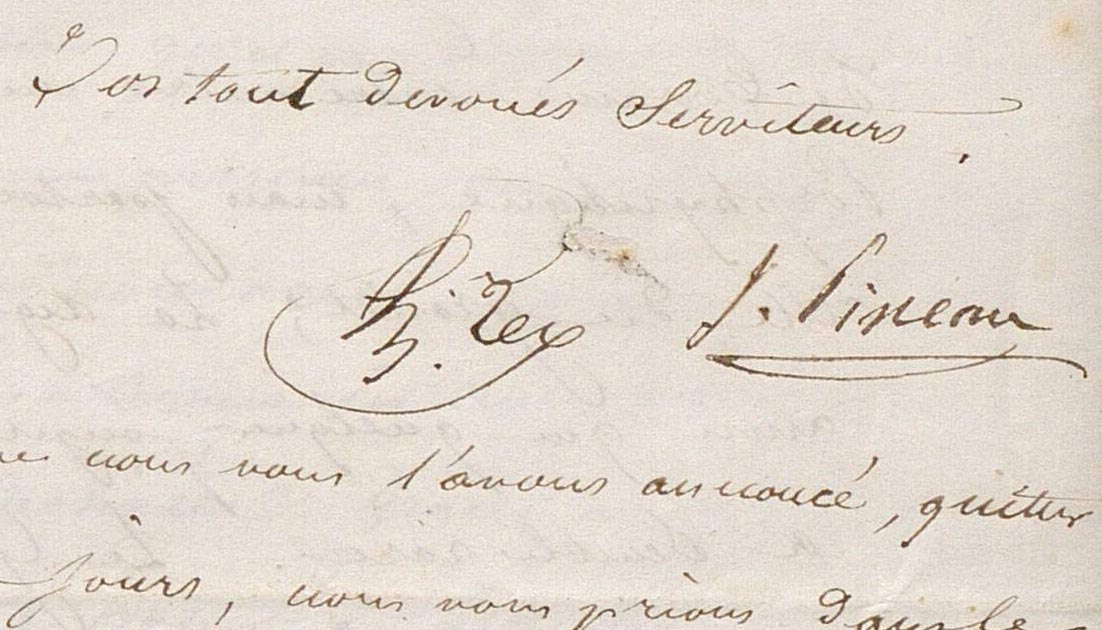 Vos tout dévoués Serviteurs.
Rey J. Pineau
nous vous l'avons annoncé, quitter
jours, nous vous prions dans le